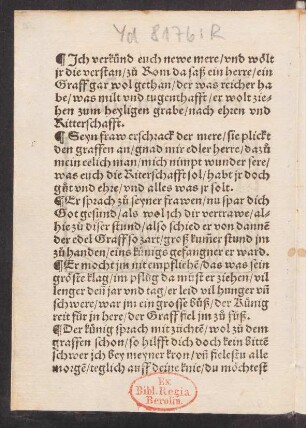 Yd 8176 R
¶ Jch verkünd euch newe mere/vnd wölt
jr die verstan/zů Rom da saß ein herre/ein
Graff gar wol gethan/der was reicher ha
be/was milt vnd tugenthafft/er wolt zie-
hen zum heyligen grabe/nach ehren vnd
Ritterschafft.
¶ Seyn fraw erschrack der mere/sie plickt
den graffen an/gnad mir edler herre/dazů
mein eelich man/mich nimpt wunder sere/
was euch die Ritterschafft sol/habt jr doch
gůt vnd ehre/vnd alles was jr solt.
¶ Er sprach zů seyner frawen/nu spar dich
Got gesund/als wol ich dir vertrawe/al-
hie zů diser stund/also schied er von dannē
der edel Graff so zart/groß kum̄er stund jm
zů handen/eins künigs gefangner er ward.
¶ Er mocht jm nit empfliehē/das was sein
gröste klag/im pflůg da můst er ziehen/vil
lenger den jar vnd tag/er leid vil hunger vn̄
schwere/war jm ein grosse bůß/der Künig
reit für in here/der Graff fiel jm zů fůß.
¶ Der künig sprach mit züchtē/wol zů dem
graffen schon/so hilfft dich doch kein bittē
schwer ich bey meyner kron/vn̄ fielestu alle
morgē/teglich auff deine knie/du möchtest
Ex
Bibl. Regia
Berolin.